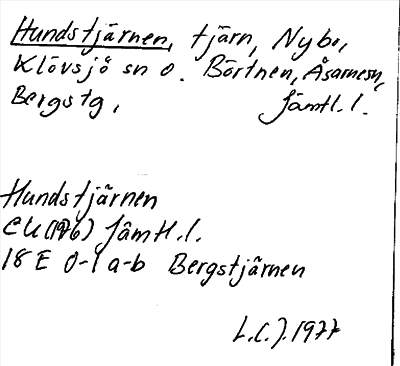 Hundstjärnen, tjärn, Nybo,
Klövsjö sn o. Börtnen, Åsarnesn,
Bergstg, Jämtl.l.
Hundstjärnen
EK(1976) Jämtl.l.
18 E 0-1 a-b Bergstjärnen
L.C.J. 1977